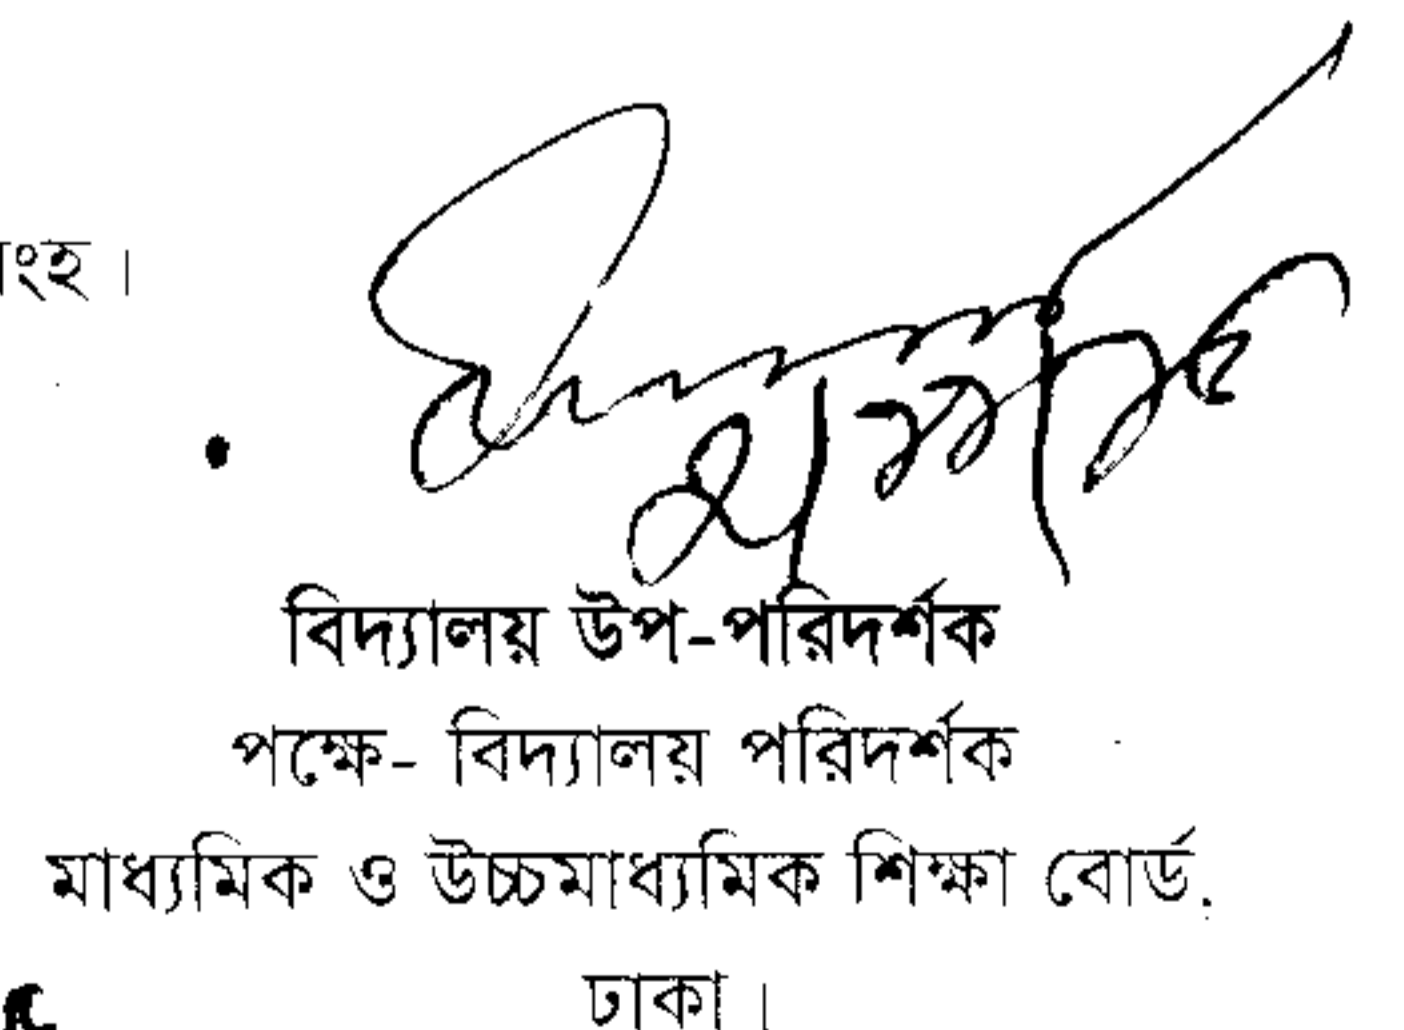 ংহ ।
বিদ্যালয় উপ-পরিদর্শক
পক্ষে- বিদ্যালয় পরিদর্শক
মাধ্যমিক ও উচ্চমাধ্যমিক শিক্ষা বোর্ড.
ঢাকা ।